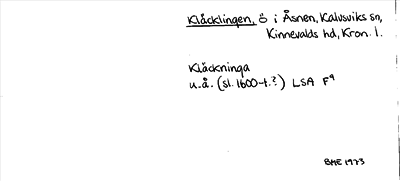 Klåcklingen, ö i Åsnen, Kalvsviks sn,
Kinnevalds hd, Kron. l.
Kläckninga
u.å. (sl. 1600-t.?) LSA F9
BHE 1973